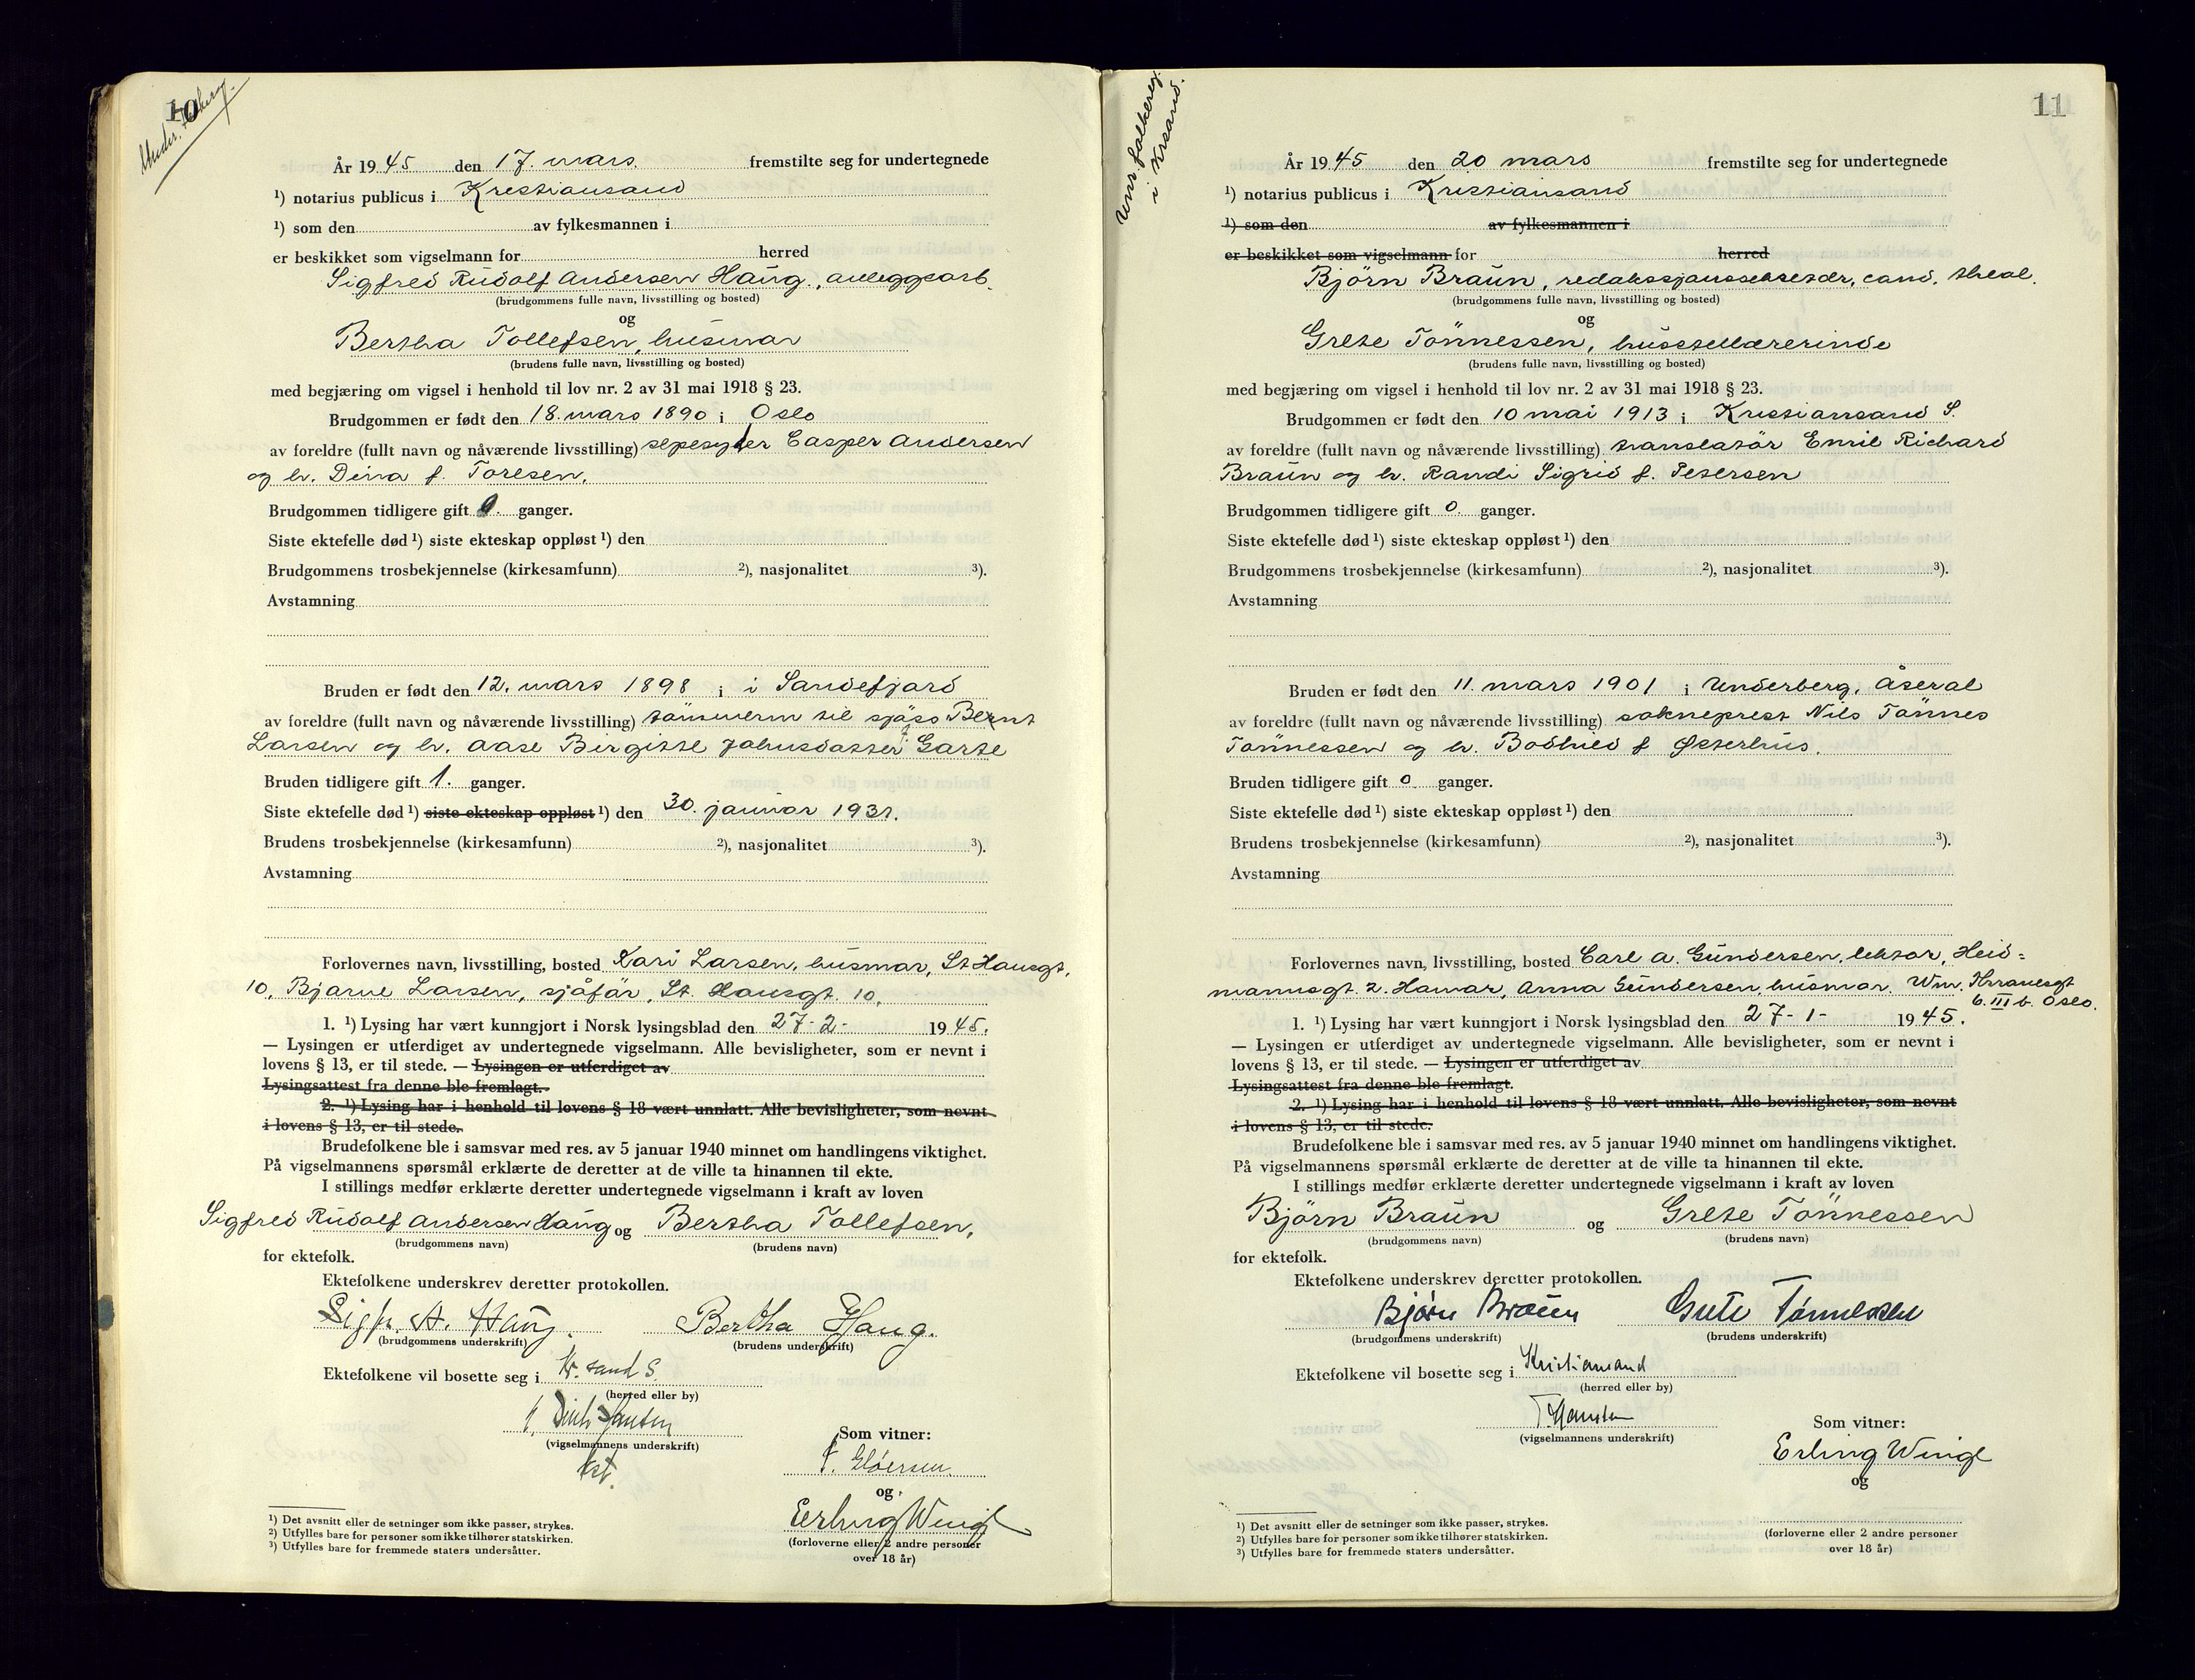 10
År 1945 den 17. mars. fremstilte seg for undertegnede
¹) notarius publicus i Kristiansand
¹) som den av fylkesmannen i
er beskikket som vigselmann for herred
Sigfred Rudolf Andersen Haug, anleggsarb.
(brudgommens fulle navn, livsstilling og bosted)
og
Bertha Tollefsen, husmor
(brudens fulle navn, livsstilling og bosted)
med begjæring om vigsel i henhold til lov nr. 2 av 31 mai 1918 § 23.
Brudgommen er født den 18. mars 1890 i Oslo
av foreldre (fullt navn og nåværende livsstilling) Casper Andersen
og h. Dina f. Toresen.
Brudgommen tidligere gift 0. ganger.
Siste ektefelle død ¹) siste ekteskap oppløst ¹) den
Brudgommens trosbekjennelse (kirkesamfunn) ²), nasjonalitet ³).
Avstamning
Bruden er født den 12. mars 1898 i i Sandefjord
av foreldre (fullt navn og nåværende livsstilling) tömmerm til sjöss Bernt
Larsen og h. Aase Birgitte Johnsdatter Garte
Bruden tidligere gift 1. ganger.
Siste ektefelle død ¹) siste ekteskap oppløst ¹) den 30. januar 1931.
Brudens trosbekjennelse (kirkesamfunn) ²), nasjonalitet ³).
Avstamning
Forlovernes navn, livsstilling, bosted Kari Larsen, husmor, St Hansgt.
10, Bjarne Larsen, sjåför, St. Hansgt. 10.
1. ¹) Lysing har vært kunngjort i Norsk lysingsblad den 27-2- 1945.
— Lysingen er utferdiget av undertegnede vigselmann. Alle bevisligheter, som er nevnt i
lovens § 13, er til stede. — Lysingen er utferdiget av
Lysingsattest fra denne ble fremlagt.
2. ¹) Lysing har i henhold til lovens § 18 vært unnlatt. Alle bevisligheter, som nevnt
i lovens § 13, er til stede.
Brudefolkene ble i samsvar med res. av 5 januar 1940 minnet om handlingens viktighet.
På vigselmannens spørsmål erklærte de deretter at de ville ta hinannen til ekte.
I stillings medfør erklærte deretter undertegnede vigselmann i kraft av loven
Sigfred Rudolf Andersen Haug og Bertha Tollefsen,
(brudgommens navn) (brudens navn)
for ektefolk.
Ektefolkene underskrev deretter protokollen.
Sigfr. A. Haug. Bertha Haug.
(brudgommens underskrift) (brudens underskrift)
Ektefolkene vil bosette seg i Kr. sand S.
(herred eller by)
(vigselmannens underskrift)
Som vitner:
Erling Wingl
og
(forloverne eller 2 andre personer
over 18 år)
¹) Det avsnitt eller de setninger som ikke passer, strykes.
²) Utfylles bare for personer som ikke tilhører statskirken.
³) Utfylles bare for fremmede staters undersåtter.
11
Unr. folkereg.
i Krsand.
År 1945 den 20 mars fremstilte seg for undertegnede
¹) notarius publicus i Kristiansand
¹) som den av fylkesmannen i
er beskikket som vigselmann for herred
Björn Braun, redaksjonssekretær, cand. theol.
(brudgommens fulle navn, livsstilling og bosted)
og
Grete Tönnessen, husstellærerinde
(brudens fulle navn, livsstilling og bosted)
med begjæring om vigsel i henhold til lov nr. 2 av 31 mai 1918 § 23.
Brudgommen er født den 10 mai 1913 i Kristiansand S.
av foreldre (fullt navn og nåværende livsstilling) translatör Emil Richard
Braun og h. Randi Sigrid f. Petersen
Brudgommen tidligere gift 0. ganger.
Siste ektefelle død ¹) siste ekteskap oppløst ¹) den
Brudgommens trosbekjennelse (kirkesamfunn) ²), nasjonalitet ³).
Avstamning
Bruden er født den 11. mars 1901 i Underberg, Åseral
av foreldre (fullt navn og nåværende livsstilling) sokneprest Nils Tönnes
Tönnessen og h. Bodhild f Østerhus.
Bruden tidligere gift 0 ganger.
Siste ektefelle død ¹) siste ekteskap oppløst ¹) den
Brudens trosbekjennelse (kirkesamfunn) ²), nasjonalitet ³).
Avstamning
Forlovernes navn, livsstilling, bosted Carl A. Gundersen, lektor, Heid=
mannsgt. 2. Hamar, Anna Gundersen, husmor. Wm. Thranesgt
6. III b. Oslo.
1. ¹) Lysing har vært kunngjort i Norsk lysingsblad den 27-1- 1945.
— Lysingen er utferdiget av undertegnede vigselmann. Alle bevisligheter, som er nevnt i
lovens § 13, er til stede. — Lysingen er utferdiget av
Lysingsattest fra denne ble fremlagt.
2. ¹) Lysing har i henhold til lovens § 18 vært unnlatt. Alle bevisligheter, som nevnt
i lovens § 13, er til stede.
Brudefolkene ble i samsvar med res. av 5 januar 1940 minnet om handlingens viktighet.
På vigselmannens spørsmål erklærte de deretter at de ville ta hinannen til ekte.
I stillings medfør erklærte deretter undertegnede vigselmann i kraft av loven
Björn Braun og Grete Tönnessen
(brudgommens navn) (brudens navn)
for ektefolk.
Ektefolkene underskrev deretter protokollen.
Bjørn Braun Grete Tønnessen
(brudgommens underskrift) (brudens underskrift)
Ektefolkene vil bosette seg i Kristiansand
(herred eller by)
(vigselmannens underskrift)
Som vitner:
Erling Wingl
og
(forloverne eller 2 andre personer
over 18 år)
¹) Det avsnitt eller de setninger som ikke passer, strykes.
²) Utfylles bare for personer som ikke tilhører statskirken.
³) Utfylles bare for fremmede staters undersåtter.